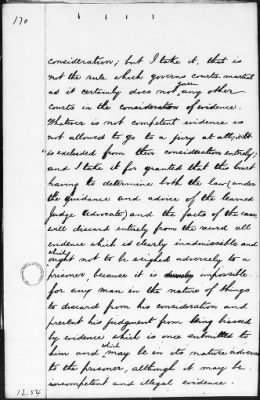 170
consideration; but I take it, that is
not the rule which governs courts-martial
as it certainly does not govern any other
courts in the consideration of evidence.
Whatever is not competent evidence is
not allowed to go to a jury at all; it
is excluded from their consideration entirely;
and I take it for granted that this Court
having to determine both the law (under
the guidance and advice of the learned
Judge Advocate) and the facts of the case,
will discard entirely from the record all
evidence which is clearly inadmissible and
which
ought not to be sighed adversely to a
prisoner, because it is impossible
for any man in the nature of things
to discard from his consideration and
prevent his judgment from being biassed
by evidence which is once submitted to
him and which may be in its nature adverse
to the prisoner, although it may be
incompetent and illegal evidence.
1254